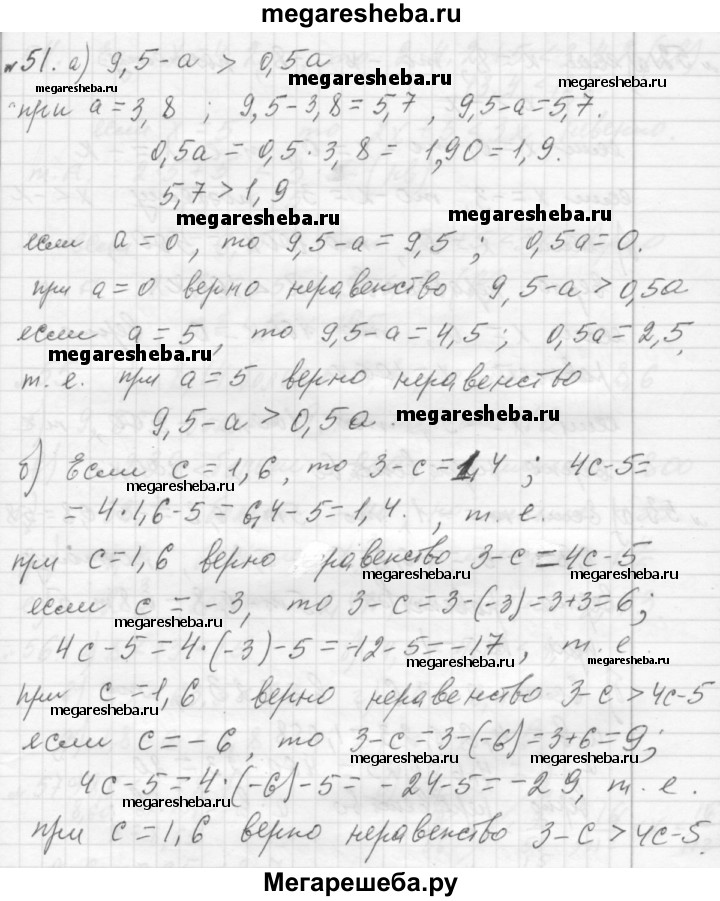 megaresheba.ru
№51. а) 9,5-а > 0,5а
megaresheba.ru
megaresheba.ru
при а=3,8 ; 9,5-3,8=5,7, 9,5-а=5,7.
0,5а = 0,5·3,8 = 1,90=1,9.
5,7>1,9
megaresheba.ru
megaresheba.ru
если а=0, то 9,5-а=9,5 ; 0,5а=0.
при а=0 верно неравенство 9,5-а>0,5а
если а=5, то 9,5-а=4,5 ; 0,5а=2,5,
megaresheba.ru
т. е. при а=5 верно неравенство
9,5-а>0,5а.
megaresheba.ru
б) Если с=1,6, то 3-с=1,4 ; 4с-5=
megaresheba.ru
megaresheba.ru
=4·1,6-5=6,4-5=1,4. , т. е.
при с=1,6 верно равенство 3-с=4с-5
megaresheba.ru
megaresheba.ru
если с = -3, то 3-с=3-(-3)=3+3=6;
megaresheba.ru
4с-5=4·(-3)-5=-12-5=-17, т. е.
megaresheba.ru
megaresheba.ru
при с=1,6 верно неравенство 3-с>4с-5
megaresheba.ru
если с=-6, то 3-с=3-(-6)=3+6=9;
megaresheba.ru
4с-5=4·(-6)-5= -24-5=-29, т. е.
megaresheba.ru
megaresheba.ru
при с=1,6 верно неравенство 3-с>4с-5.
megaresheba.ru
Мегарешеба.ру